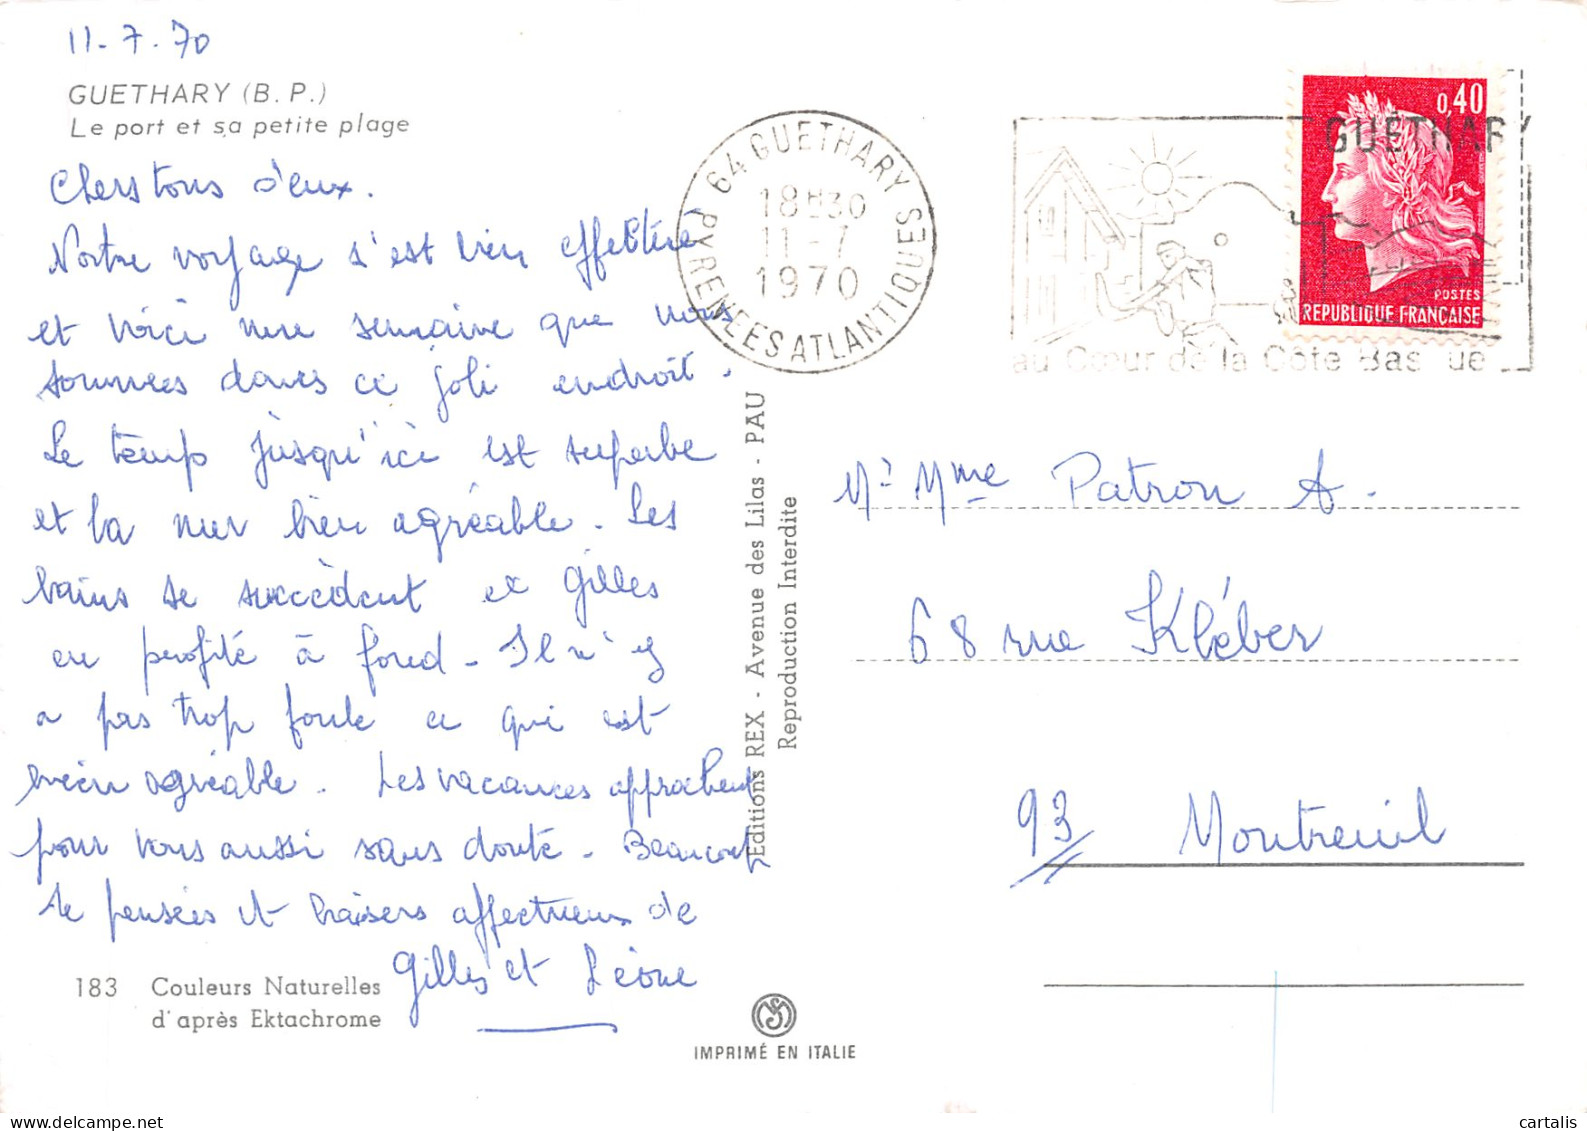 11-7-70
GUETHARY (B. P.)
Le port et sa petite plage
Chers tous deux.
Notre voyage s'est bien effectué
et voici une semaine que nous
sommes dans ce joli endroit.
Le temps jusqu'ici est superbe
et la mer bien agréable. Les
bains se succèdent et Gilles
en profite à fond. Il n'y
a pas trop foule ce qui est
bien agréable. Les vacances approchent
pour vous aussi sans doute. Beaucoup
de pensées et baisers affectueux de
Gilles et Léone
183 Couleurs Naturelles
d'après Ektachrome
IMPRIMÉ EN ITALIE
Editions REX - Avenue des Lilas - PAU
Reproduction Interdite
64 GUETHARY
18H30
11-7
1970
PYRENEES ATLANTIQUES
GUÉTHARY
au Cœur de la Côte Basque
0,40
POSTES
REPUBLIQUE FRANÇAISE
Mr Mme Patron A.
68 rue Kléber
93 Montreuil
cartalis